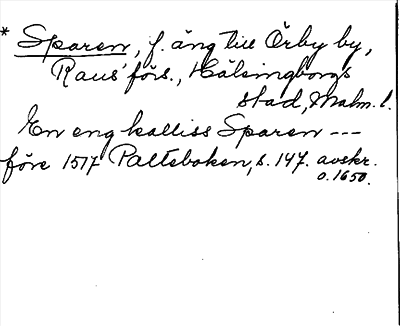 * Sparen, f. äng till Örby by,
Raus' förs., Hälsingborgs
stad, Malm. l.
En eng kalliss Sparen ---
före 1517 Palteboken, s. 147. avskr.
o. 1650.